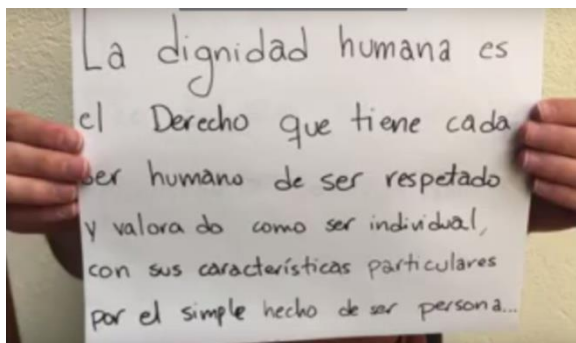 La dignidad humana es
el Derecho que tiene cada
ser humano de ser respetado
y valora do como ser individual,
con sus características particulares
por el simple hecho de ser persona...